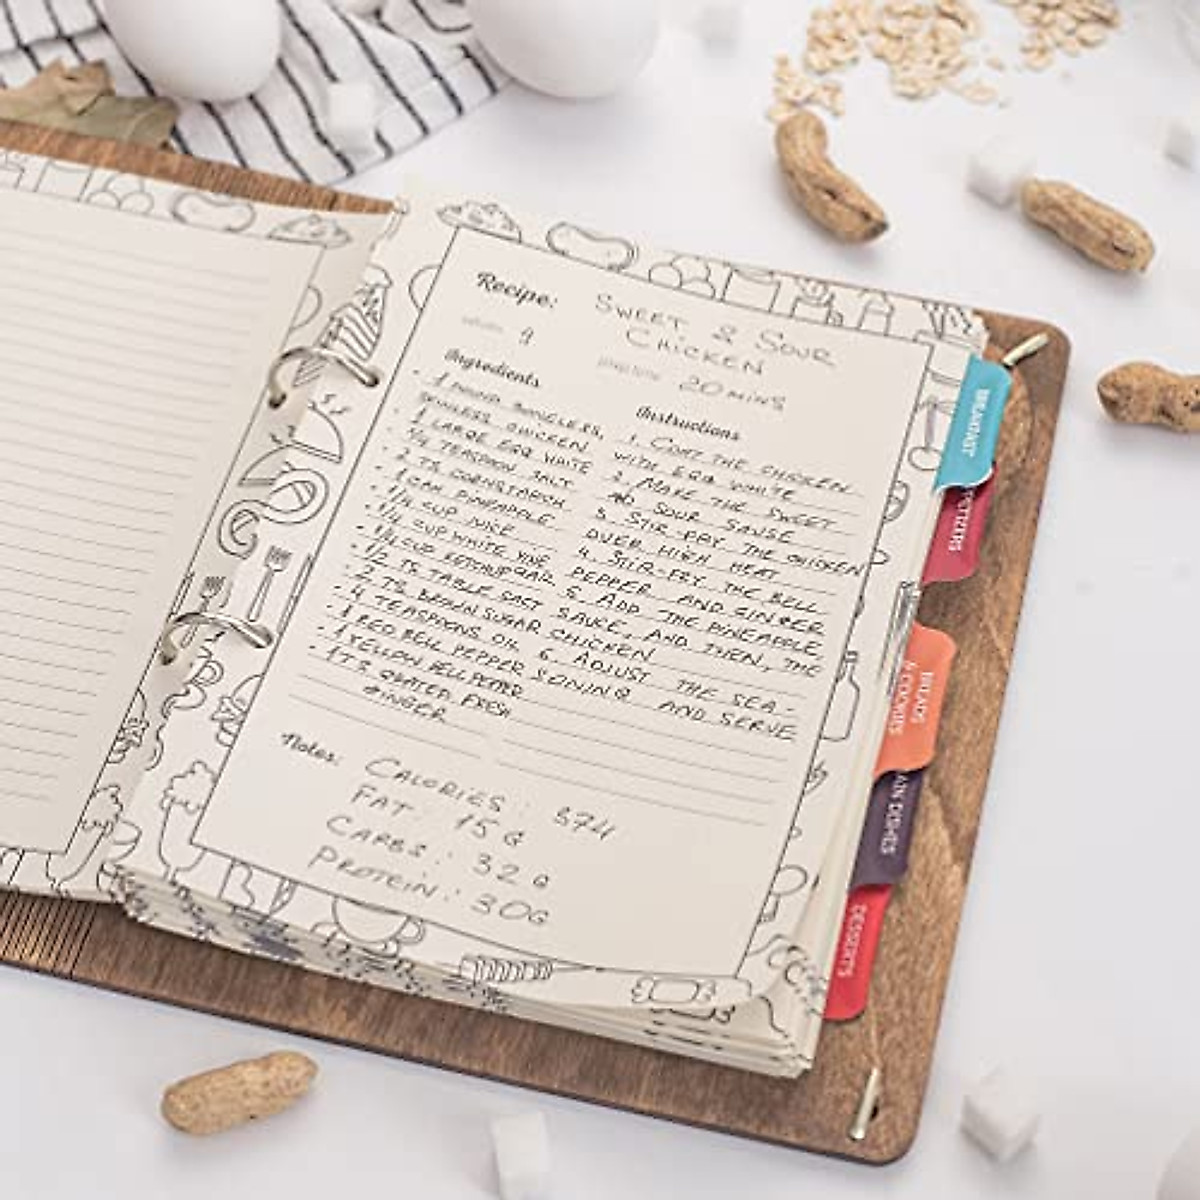 Recipe: SWEET & SOUR
CHICKEN
4
20 MINS
Ingredients
- 1 POUND BONELESS,
SKINLESS CHICKEN
- 1 LARGE EGG WHITE
- 1/4 TEASPOON SALT
- 2 TS CORNSTARCH
- 1 CAN PINEAPPLE
- 1/4 CUP JUICE
- 1/4 CUP WHITE VINEGAR
- 1/4 CUP KETCHUP
- 1/2 TS TABLE SALT
- 2 TS BROWN SUGAR
- 4 TEASPOONS OIL
- 1 RED BELL PEPPER
- 1 YELLOW BELL PEPPER
- 1 TS GRATED FRESH
GINGER
Instructions
1. COAT THE CHICKEN
WITH EGG WHITE
2. MAKE THE SWEET
SOUR SAUSE
3. STIR-FRY THE CHICKEN
OVER HIGH HEAT
4. STIR-FRY THE BELL
PEPPER AND GINGER
5. ADD THE PINEAPPLE,
SAUCE, AND THEN, THE
CHICKEN
6. ADJUST THE SEA-
SONING AND SERVE
Notes: CALORIES: 374
FAT 15G
CARBS: 32G
PROTEIN: 30G
BREAKFAST
PETIZERS
BREADS
& COOKIES
AIN DISHES
DESSERTS